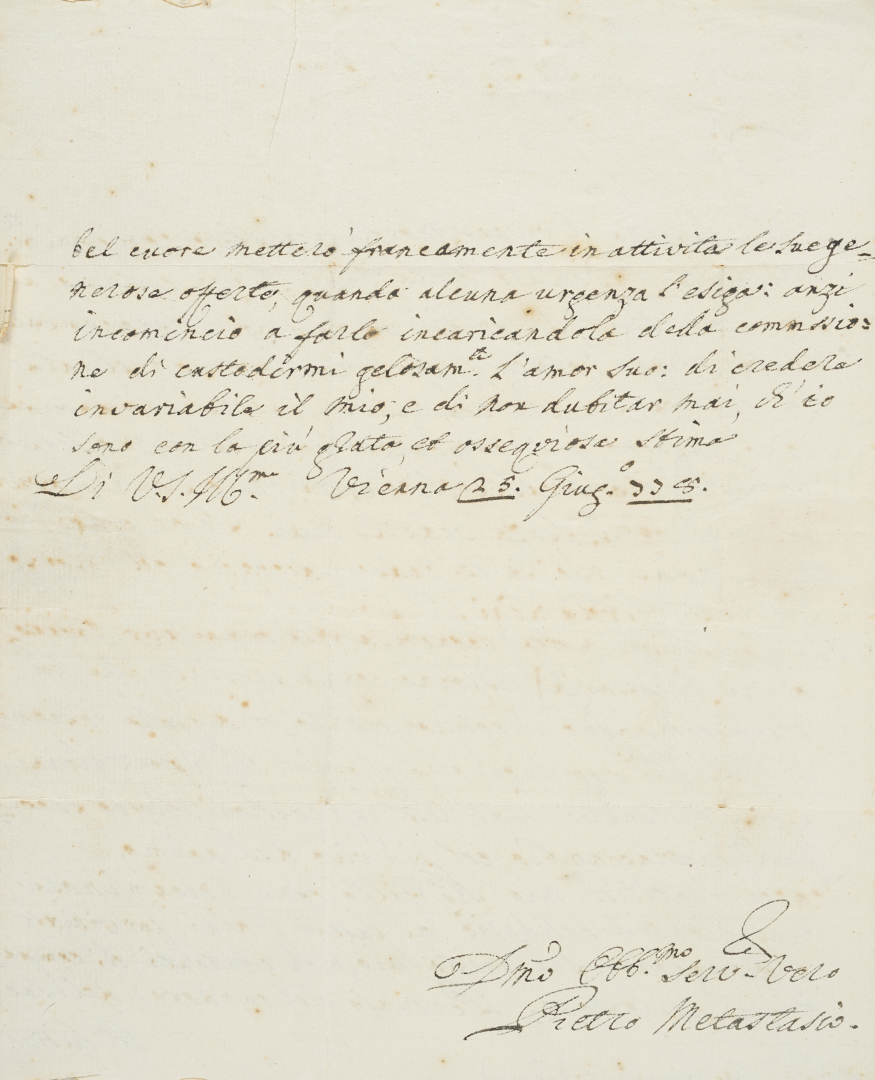 del cuore metterò francamente in attività le sue ge=
nerose offerte, quando alcuna urgenza l'esiga: anzi
incomincio a farlo incaricandola della commissio=
ne di custodirmi gelosam.te L'amor suo: di credere
invariabile il mio, e di non dubitar mai, ch'io
sono con la più grata, ed ossequiosa stima
Di V.S. Ill.ma Vienna 25. Giug.o 778.
Dmo Obb.mo Serv. Vero
Pietro Metastasio.